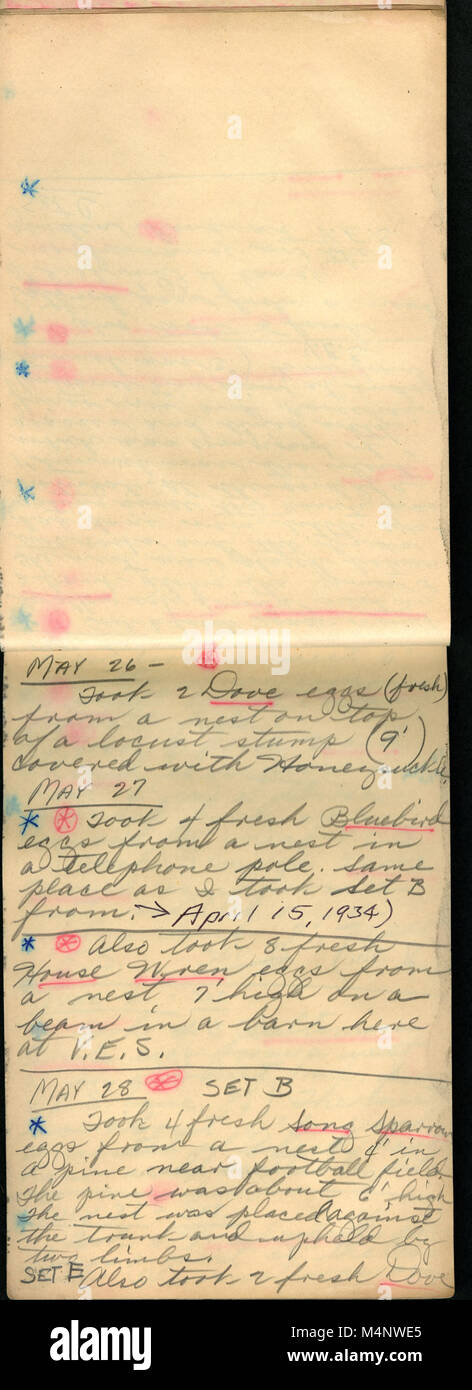 MAY 26 –
Took 2 Dove eggs (fresh)
from a nest on top
of a locust stump (9')
covered with Honeysuckle.
MAY 27
Took 4 fresh Bluebird
eggs from a nest in
a telephone pole. Same
place as I took Set B
from. → April 15, 1934)
Also took 8 fresh
House Wren eggs from
a nest 7' high on a
beam in a barn here
at V.E.S.
MAY 28 SET B
Took 4 fresh Song Sparrow
eggs from a nest 4' in
a pine near football field.
The pine was about 6' high
The nest was placed against
the trunk and upheld by
two limbs.
SET E Also took 2 fresh Dove
alamy
Image ID: M4NWE5
www.alamy.com